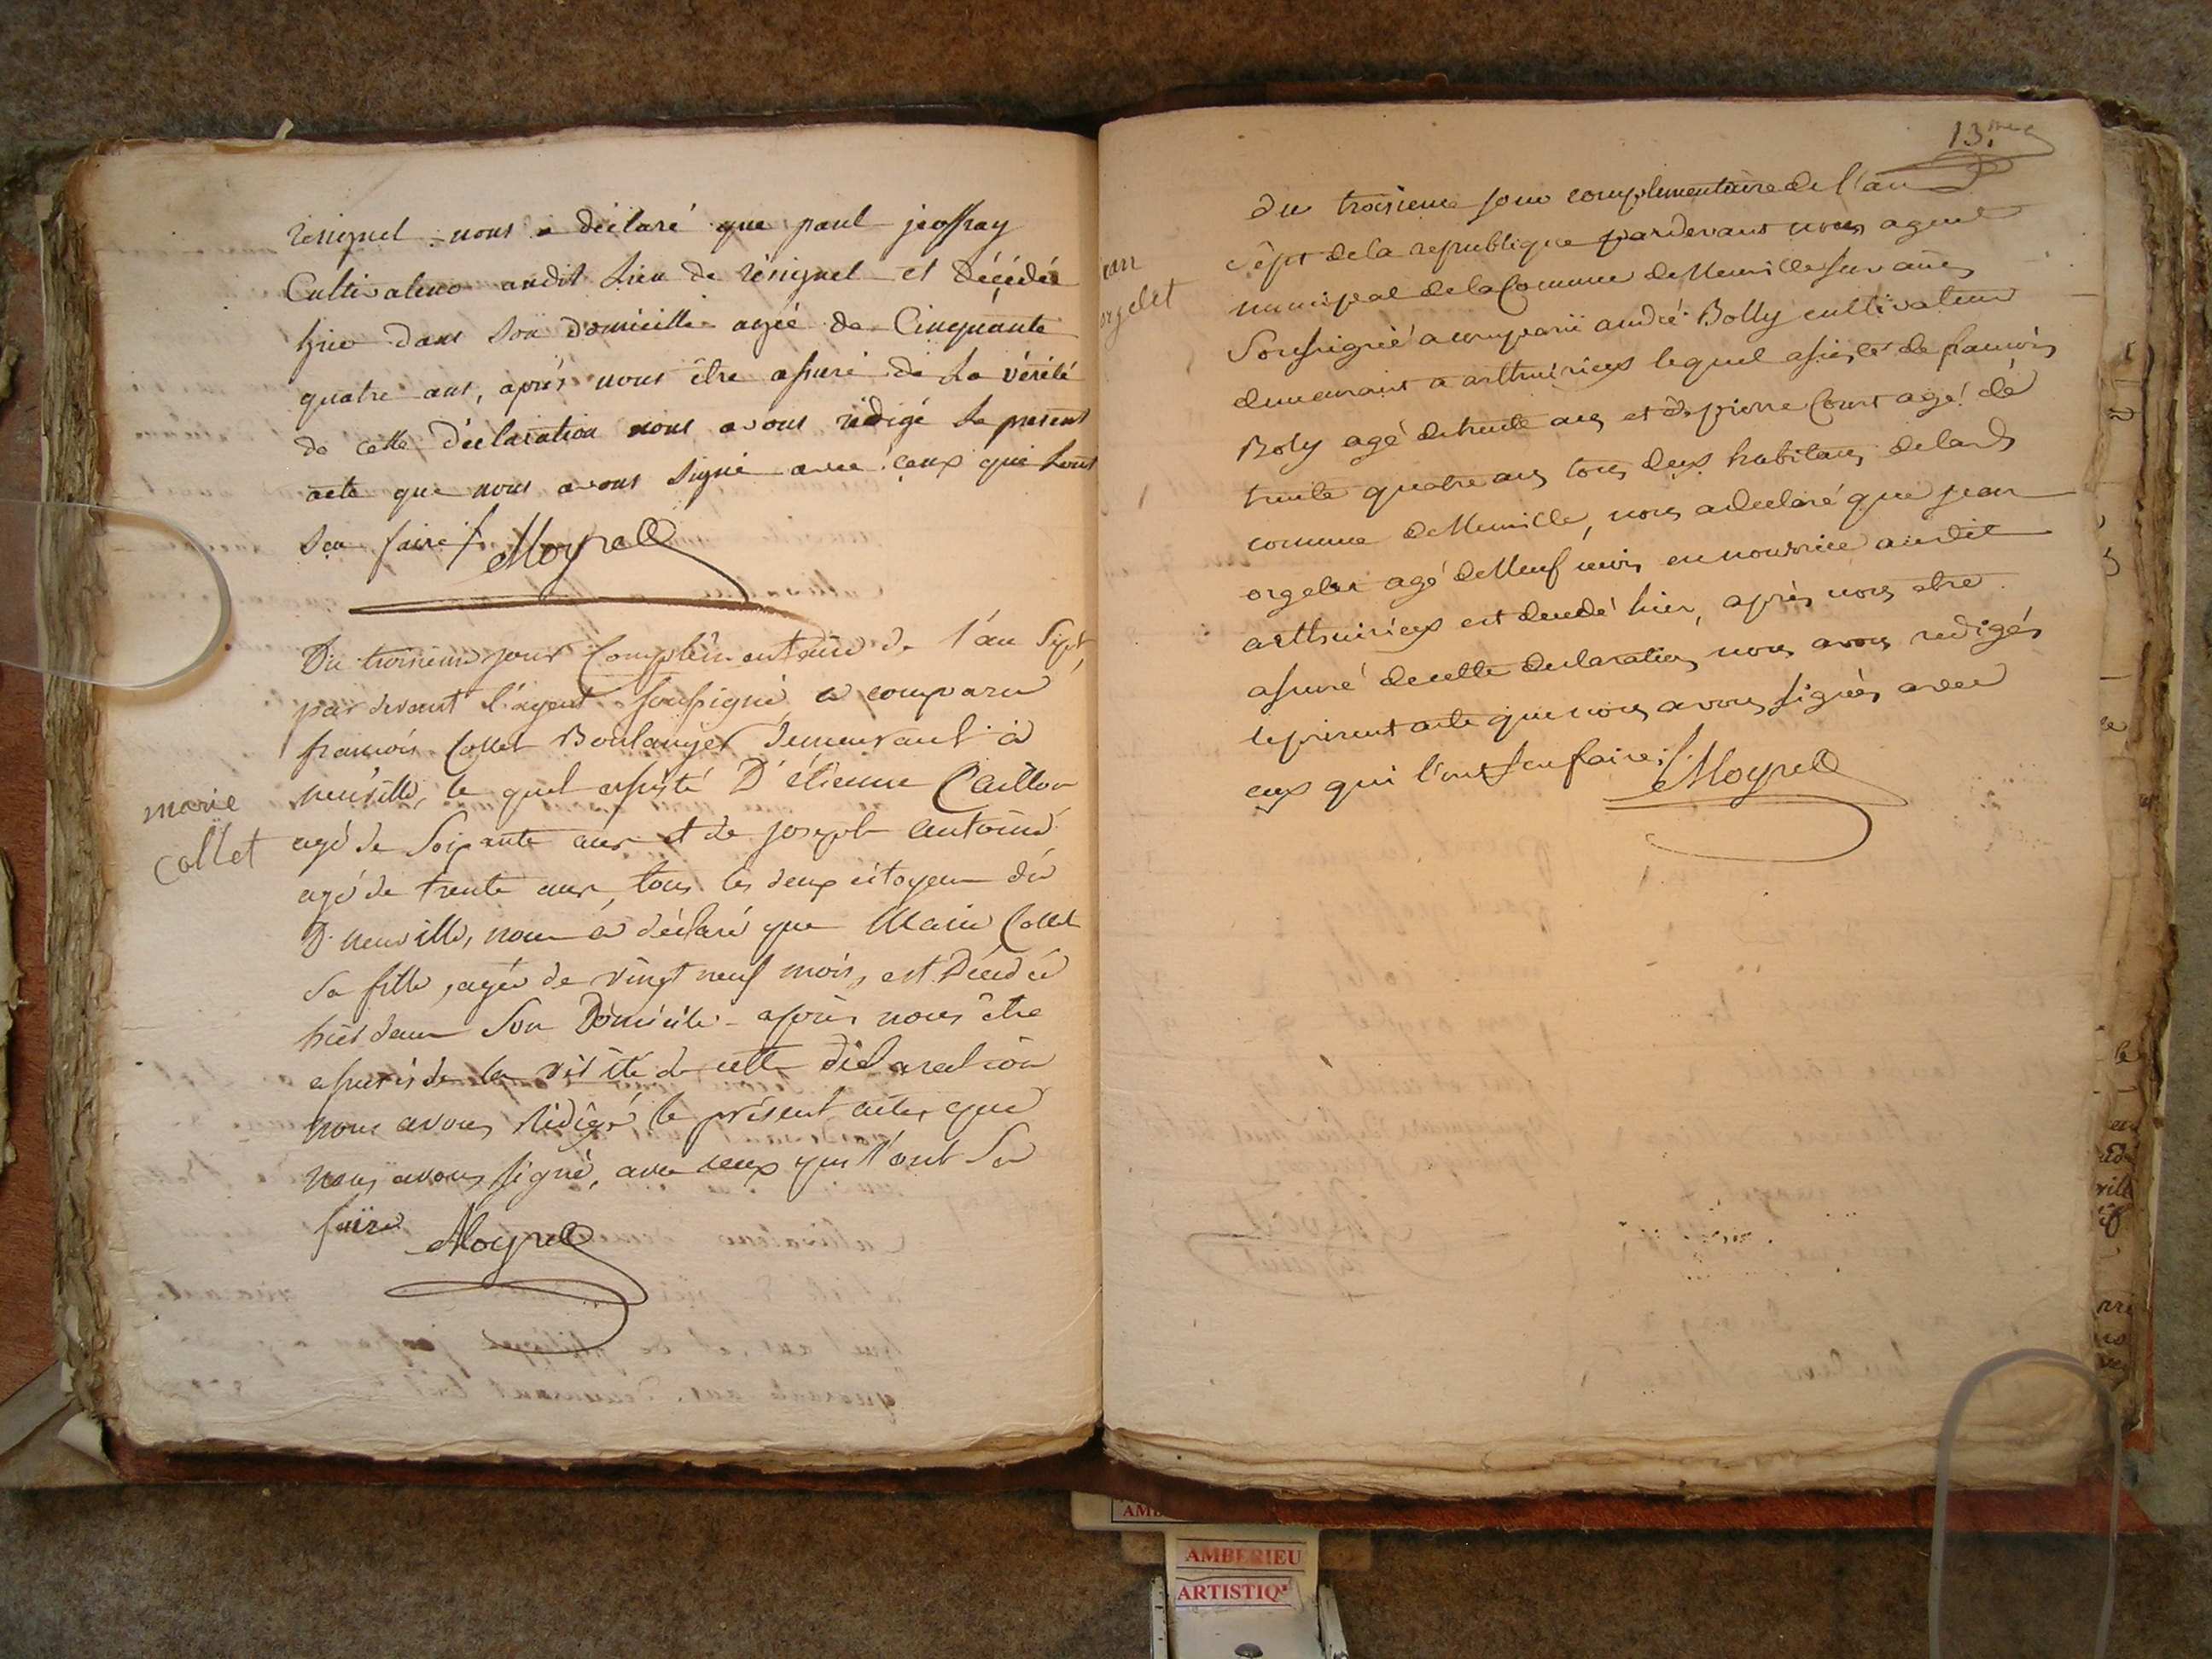 résignel nous a déclaré que paul jeoffray
Cultivateur audit Lieu de résignel et Décédé
hier dans son domicille agée de Cinquante
quatre ans, après nous être assuré de La vérité
de cette déclaration nous avons rédigé Le present
acte que nous avons signé avec ceux qui Lont
Sçu faire Moyret
Du troisieme jour Complémentaire de l'an Sept,
par devant l'agent soussigné a comparu
francois Collet Boulanger demeurant à
neuville, le quel assisté D'étienne Caillon
agé de Soixante ans et de joseph antoine
agé de trente ans, tous les deux citoyens dû
D. neuville, nous à déclaré que Marie Collet
Sa fille, agée de vingt neuf mois, est Décédée
hier dans Son Domicile après nous être
assurés de la vérité de cette déclaration
nous avons rédigé le présent acte, que
nous avons signé, avec ceux qui l'ont Su
faire Moyret
marie
collet
13.me
du troisieme jour complementaire de l'an
sept de la republique pardevant nous agent
municipal de la Commune de Neuville sur ains
Soussigné a comparu andré Bolly cultivateur
demeurant a arthuirieux lequel assisté de francois
Boly agé de trente ans et de pierre Court agé de
trente quatre ans tous deux habitans de lad
comune de Neuville, nous a declaré que jean
orgelet agé de Neuf mois en nourrice audit
arthuirieux est decedé hier, après nous etre
assuré de cette declaration nous avons redigés
le present acte que nous avons signés avec
ceux qui l'ont sçu faire Moyret
ean
orgelet
AMBERIEU
ARTISTIQ